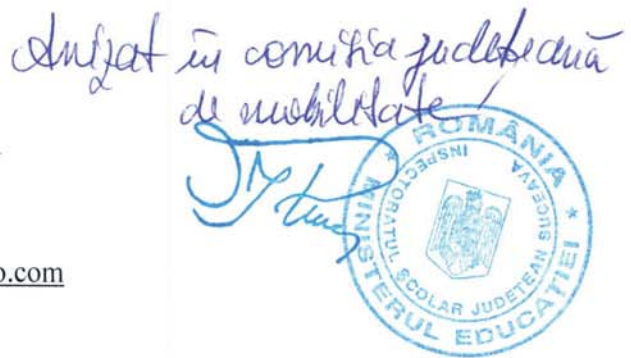 Avizat în comisia județeană
de mobilitate
ROMÂNIA * MINISTERUL EDUCAȚIEI *
INSPECTORATUL ȘCOLAR JUDEȚEAN SUCEAVA
o.com